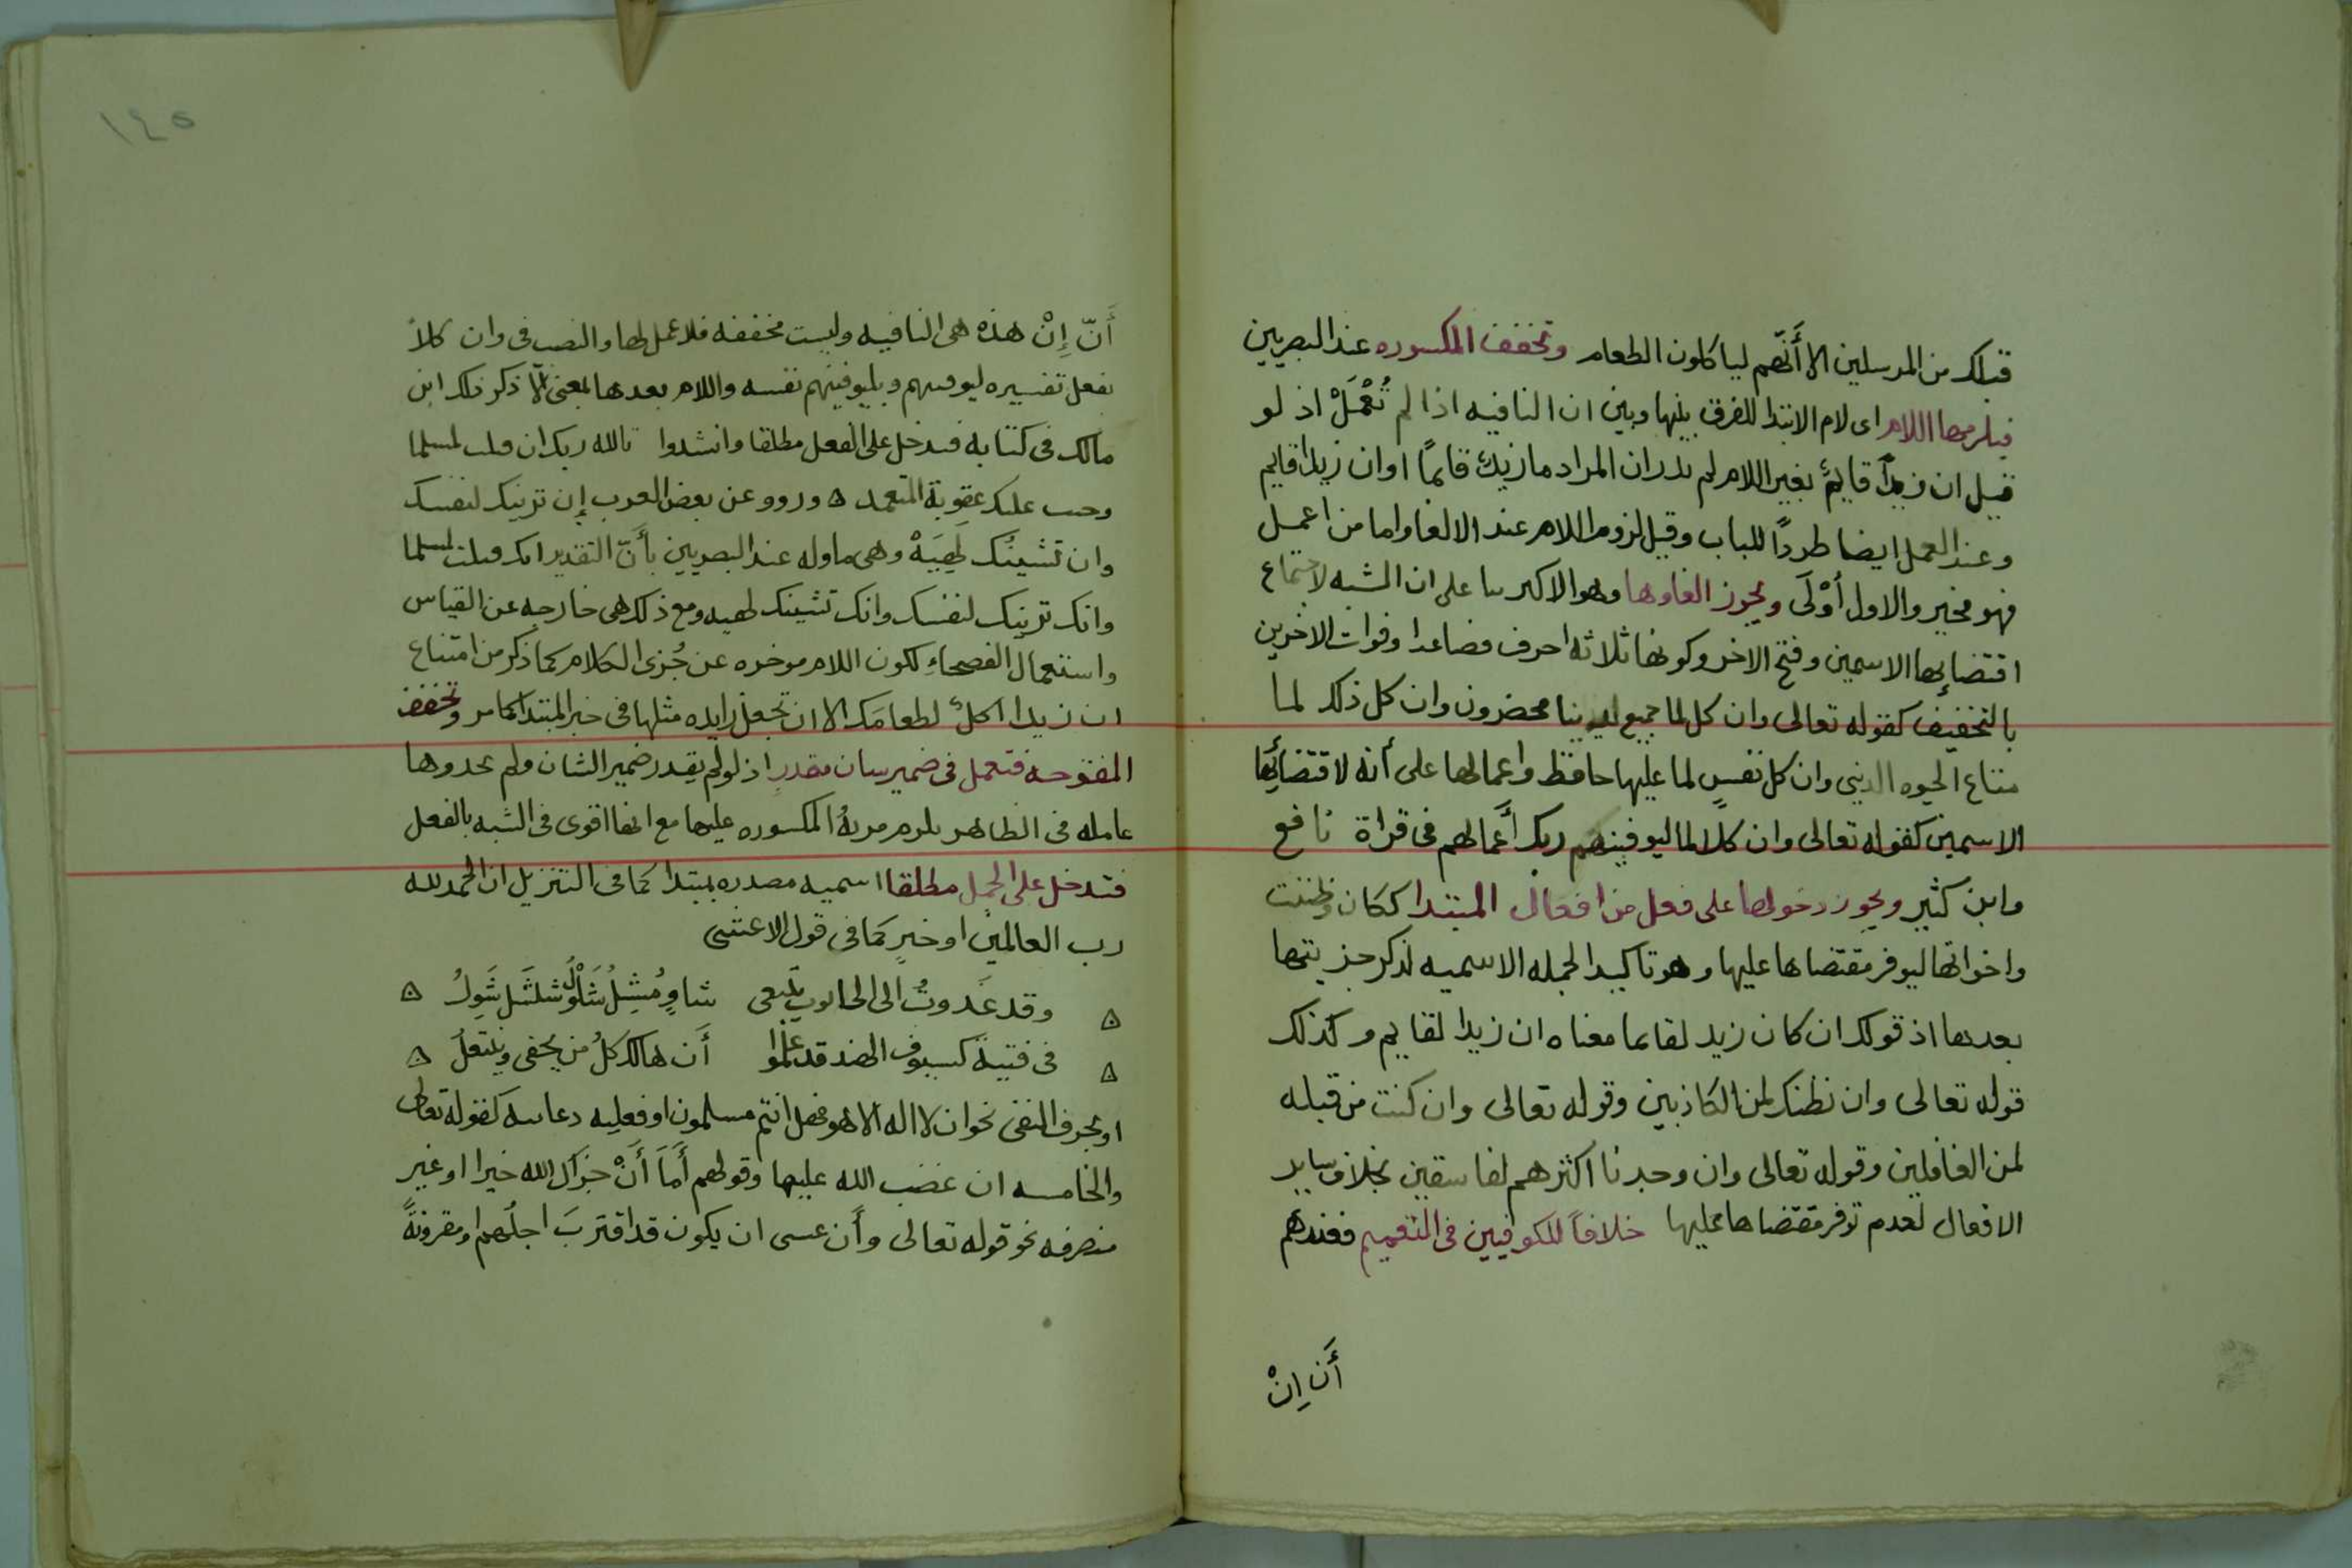 قبلك من المرسلين الا أَنَّهم لياكلون الطعام وتخفف المكسوره عند البصريين
فيلزمها اللام اى لام الابتدا للفرق بينها وبين ان النافيه اذا لم تُعْمَلْ اذ لو
قيل ان زيدٌ قايمٌ بغير اللام لم يدر ان المراد ما زيدٌ قايمًا او ان زيدا قايم
وعند العمل ايضا طردًا للباب وقيل لزوم اللام عند الالغا واما من اعمل
فهو مخير والاول أوْلَى ويجوز الغاوها وهو الاكثر بنا على ان الشبه لاجتماع
اقتضايها الاسمين وفتح الاخر وكونها ثلاثه احرف فصاعدا وفوات الاخرين
بالتخفيف كقوله تعالى وان كل لما جميع لدينا محضرون وان كل ذلك لما
متاع الحيوه الدنيى وان كل نفسٍ لما عليها حافظ واعمالها على أنه لاقتضائها
الاسمين كقوله تعالى وان كلًا لما ليوفينهم ربك أَعمالهم فى قراة نافع
وابن كثير ويجوز دخولها على فعل من افعال المبتدا ككان وظننت
واخواتها ليوفر مقتضاها عليها وهو تاكيد الجمله الاسميه لذكر جزيتها
بعدها اذ قولك ان كان زيد لقايما معناه ان زيدا لقايم وكذلك
قوله تعالى وان نظنك لمن الكاذبين وقوله تعالى وان كنت من قبله
لمن الغافلين وقوله تعالى وان وجدنا اكثرهم لفاسقين بخلاف ساير
الافعال لعدم توفر مقتضاها عليها خلافاً للكوفيين فى التعميم فعندهم
أَن اِنْ
١٤٥
أَنّ إِنْ هذه هى النافيه وليست مخففه فلا عمل لها والنصب فى وان كلاً
بفعل تفسيره ليوفينهم وبليوفينهم نفسه واللام بعدها بمعنى إلّا ذكر ذلك ابن
مالك فى كتابه فتدخل على الفعل مطلقا وانشدوا تالله ربك ان قتلت لمسلما
وجبت عليك عقوبة المتعمد ورووا عن بعض العرب إن تزينك لنفسك
وان تشينُك لَهِيَهْ وهى ماوله عند البصريين بأَنّ التقدير انك قتلت لمسلما
وانك تزينك لنفسك وانك تشينك لهيه ومع ذلك هى خارجه عن القياس
واستعمال الفصحاءِ لكون اللام موخره عن جُزى الكلام كما ذكر من امتناع
ان زيدا اكلٌ لطعامَك الا ان تجعل زايده مثلها فى خبر المبتدا كما مر وتخفف
المفتوحه فتعمل فى ضمير شان مقدر اذ لو لم يقدر ضمير الشان ولم يجدوها
عامله فى الظاهر يلزم مزيةُ المكسوره عليها مع انها اقوى فى الشبه بالفعل
فتدخل على الجمل مطلقا اسميه مصدره بمبتدا كما فى التنزيل ان الحمد لله
رب العالمين او خبرٍ كما فى قول الاعشى
وقد غَدوتُ الى الحانوت يتبعى شاوٍ مُشِلٌ شَلُولٌ شلشَل شَوِلُ
فى فتيةٍ كسيوف الهند قد علموا أَن هالك كلُ من يحفى وينتعلُ
او بحرف النفى نحو ان لا اله الا هو فهل انتم مسلمون او فعليه دعاييه كقوله تعالى
والخامسه ان غضب الله عليها وقولهم أَمَا أَنْ جزاك الله خيرا او غير
منصرفه نحو قوله تعالى وأَن عسى ان يكون قد اقتربَ اجلُهم او مقرونةً